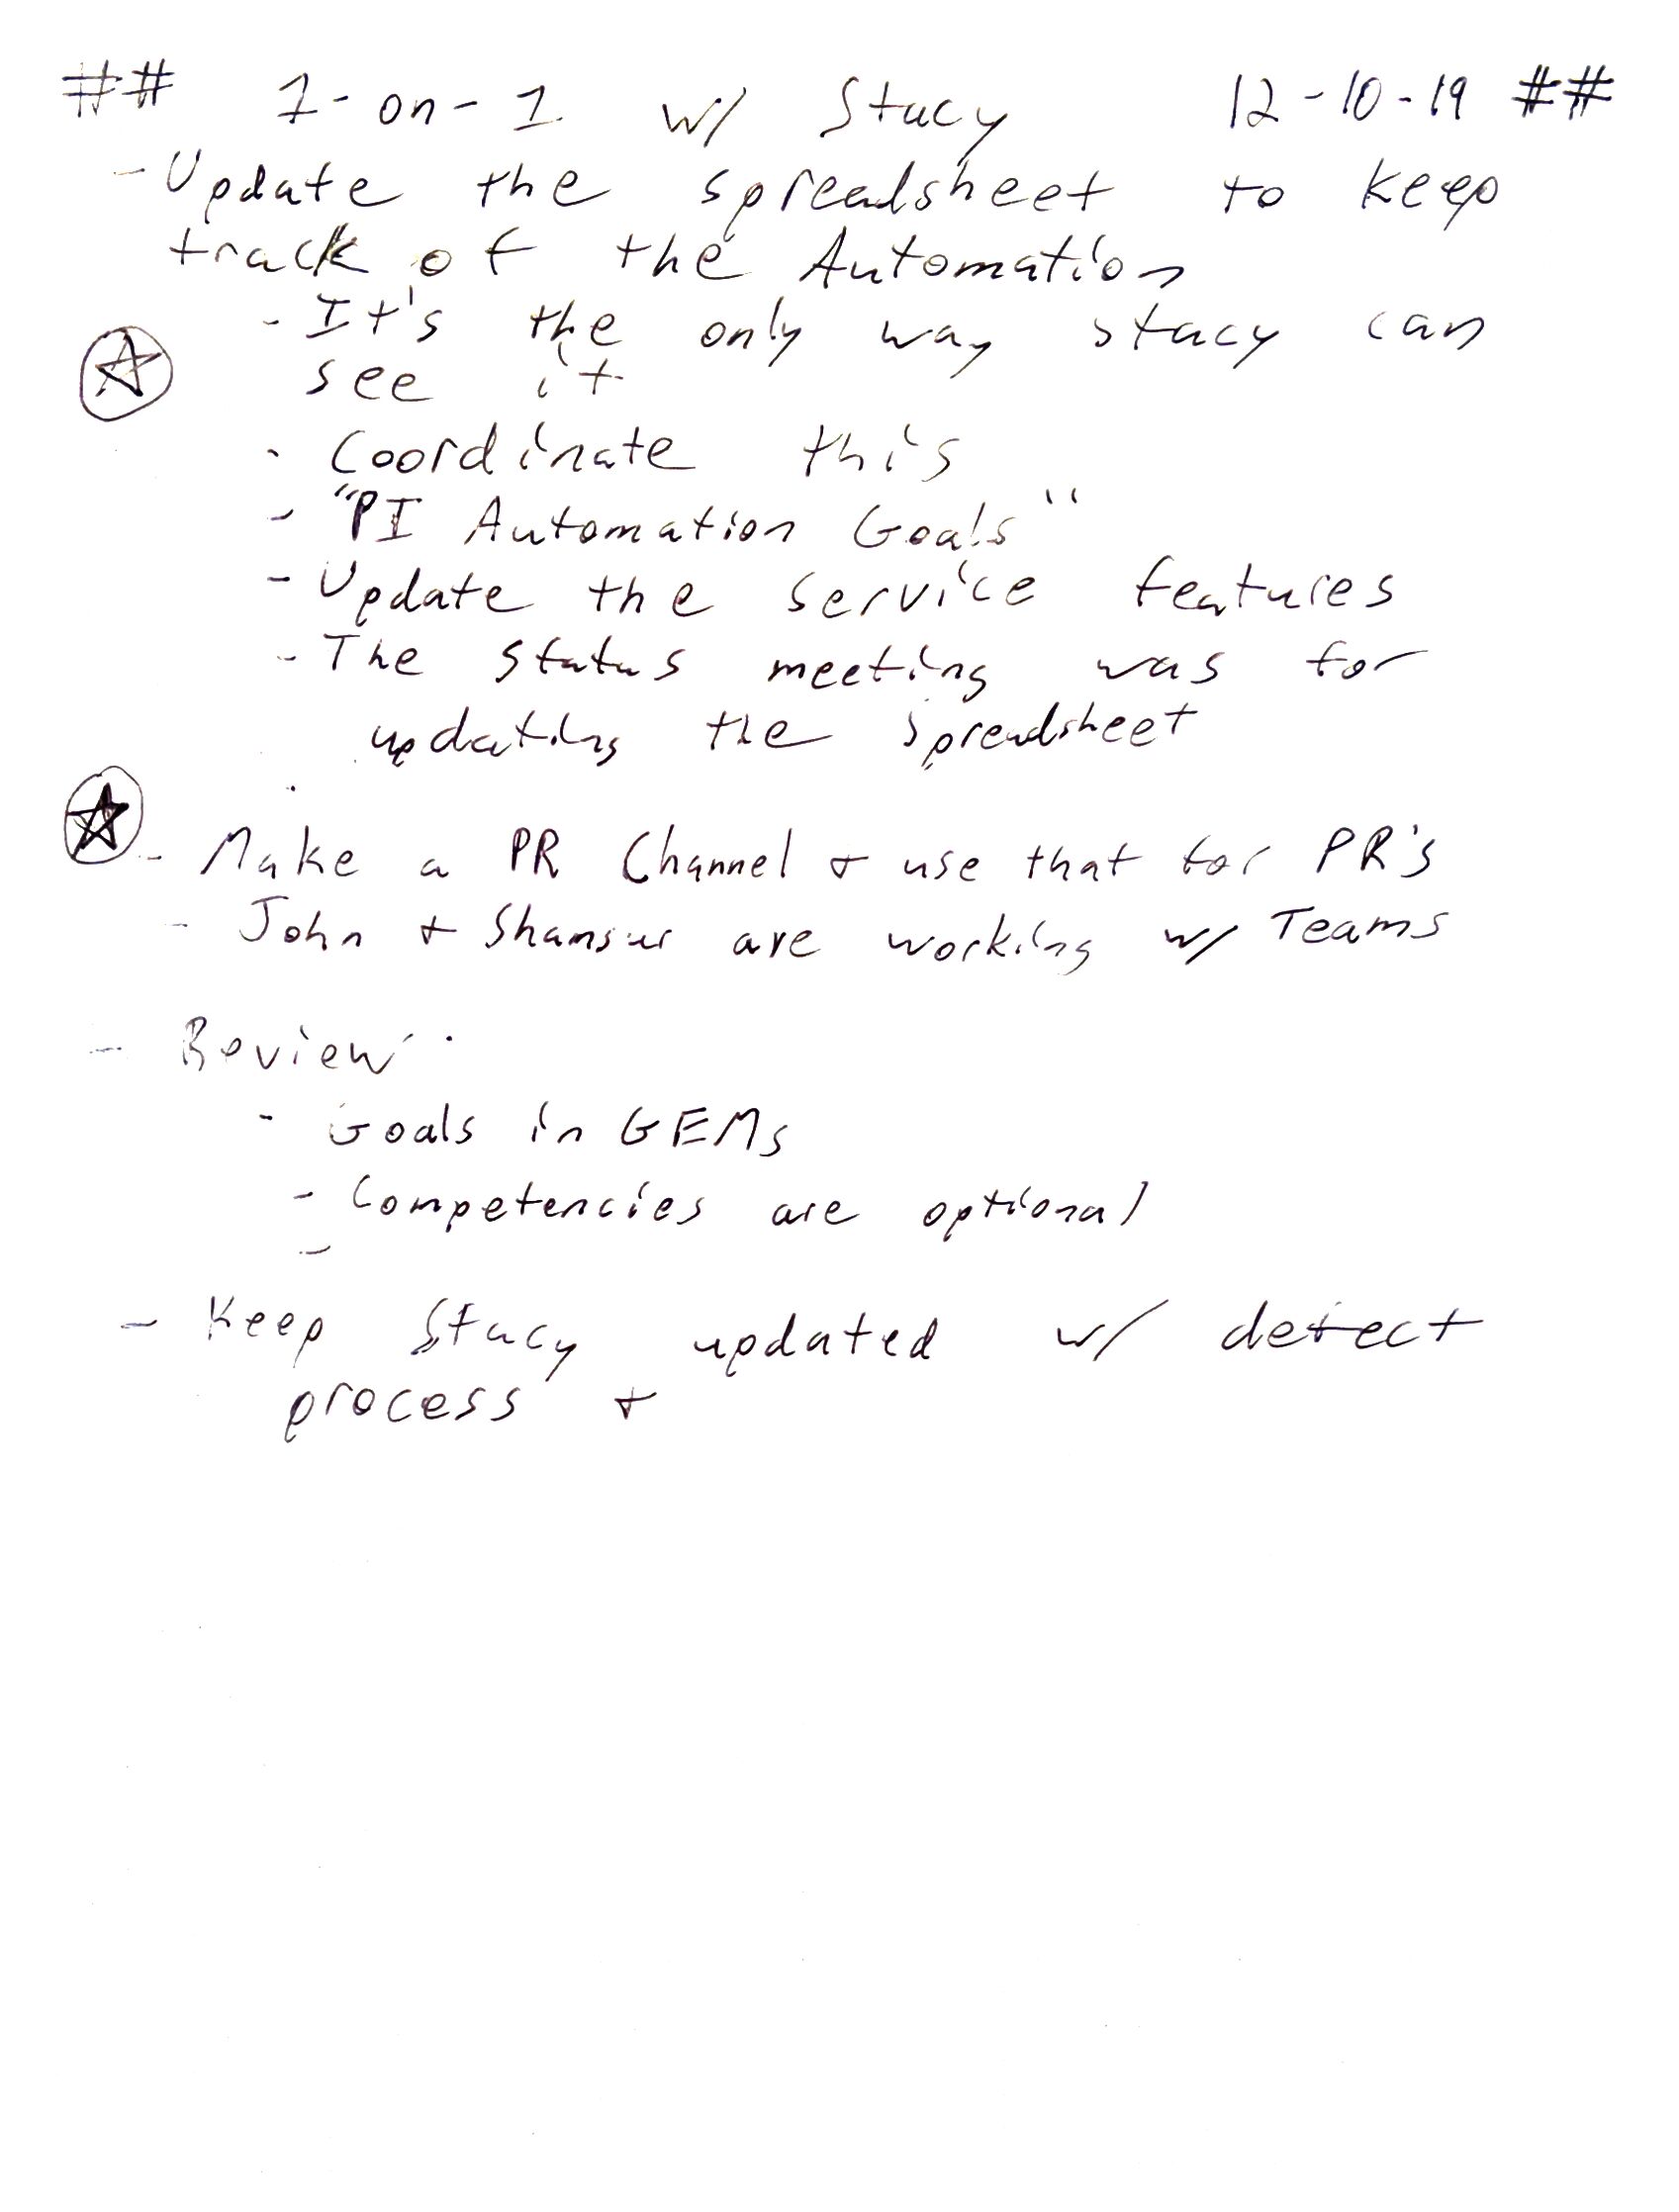 ## 1-on-1 w/ Stacy 12-10-19 ##
- Update the spreadsheet to keep
track of the Automation
- It's the only way stacy can
see it
- Coordinate this
- "PI Automation Goals"
- Update the service features
- The status meeting was for
updating the spreadsheet
- Make a PR Channel & use that for PR's
- John & are working w/ Teams
- Review:
- Goals in GEMs
- Competencies are optional
-
- Keep Stacy updated w/ defect
process &